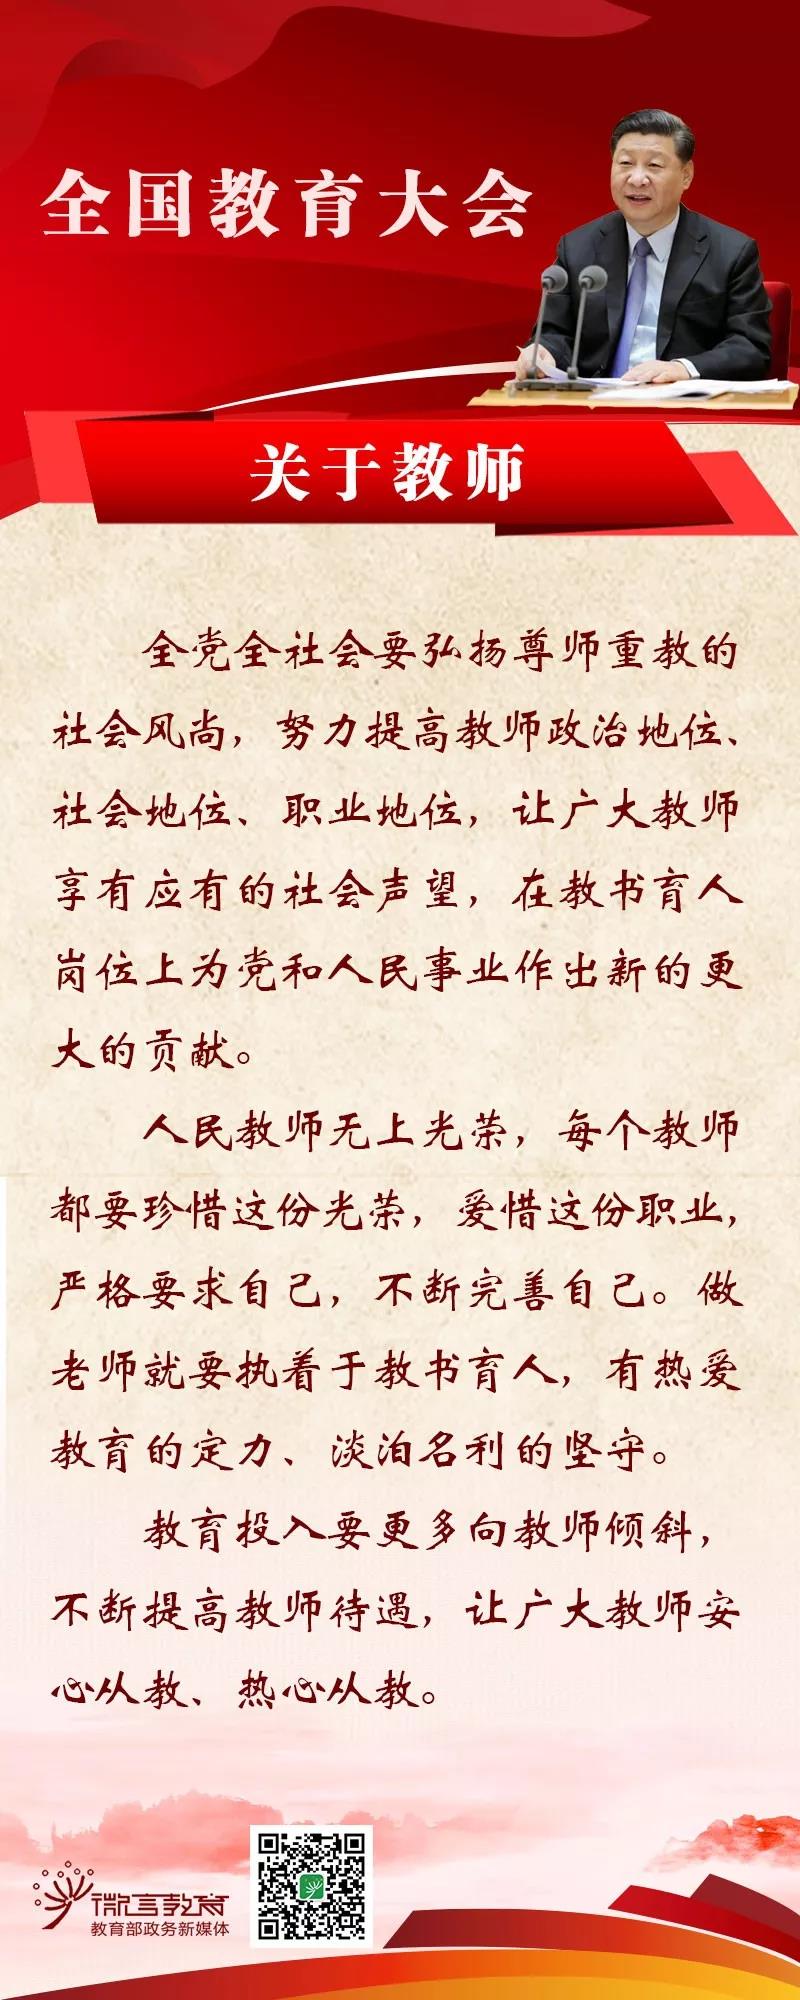 全国教育大会
关于教师
全党全社会要弘扬尊师重教的
社会风尚，努力提高教师政治地位、
社会地位、职业地位，让广大教师
享有应有的社会声望，在教书育人
岗位上为党和人民事业作出新的更
大的贡献。
人民教师无上光荣，每个教师
都要珍惜这份光荣，爱惜这份职业，
严格要求自己，不断完善自己。做
老师就要执着于教书育人，有热爱
教育的定力、淡泊名利的坚守。
教育投入要更多向教师倾斜，
不断提高教师待遇，让广大教师安
心从教、热心从教。
微言教育
教育部政务新媒体